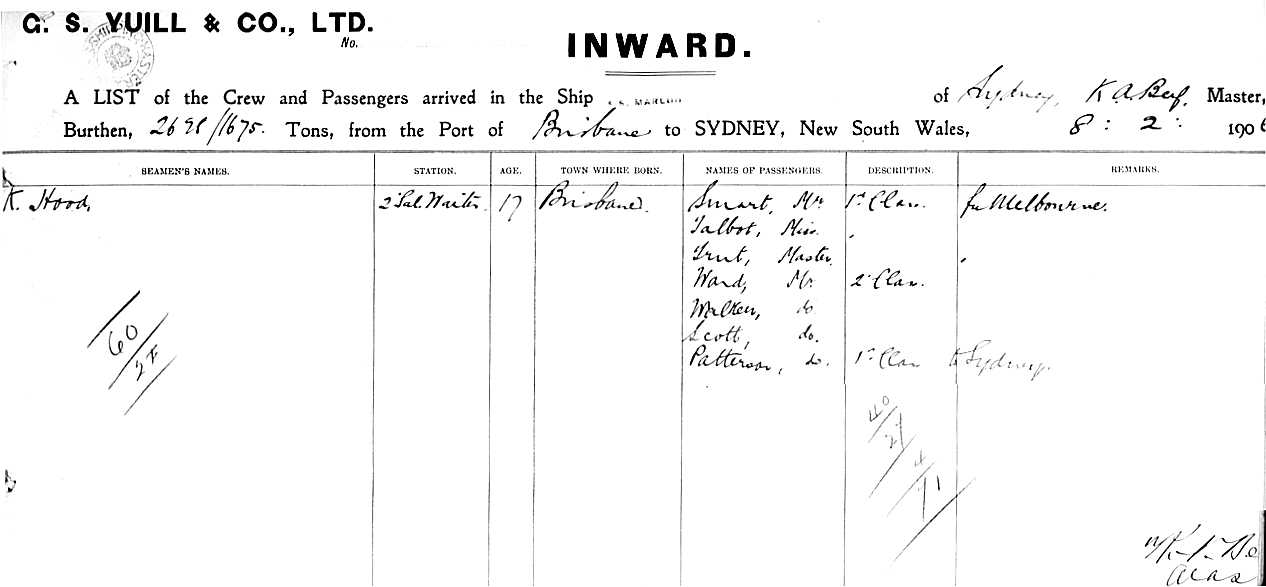 G. S. YUILL & CO., LTD.
No.
INWARD.
A LIST of the Crew and Passengers arrived in the Ship of Sydney, K A Master,
Burthen, /1675. Tons, from the Port of Brisbane to SYDNEY, New South Wales, 8 : 2 : 1906
SEAMEN'S NAMES. STATION. AGE. TOWN WHERE BORN. NAMES OF PASSENGERS. DESCRIPTION. REMARKS.
K. Hood, 2 Sal Waiter. 17 Brisbane. Smart, Mr 1st Class. for Melbourne.
Talbot, Miss.
Master.
Ward, Mr 2 Class.
Walker, do
Scott, do.
Patterson, do. 1st Class to Sydney.
60
40